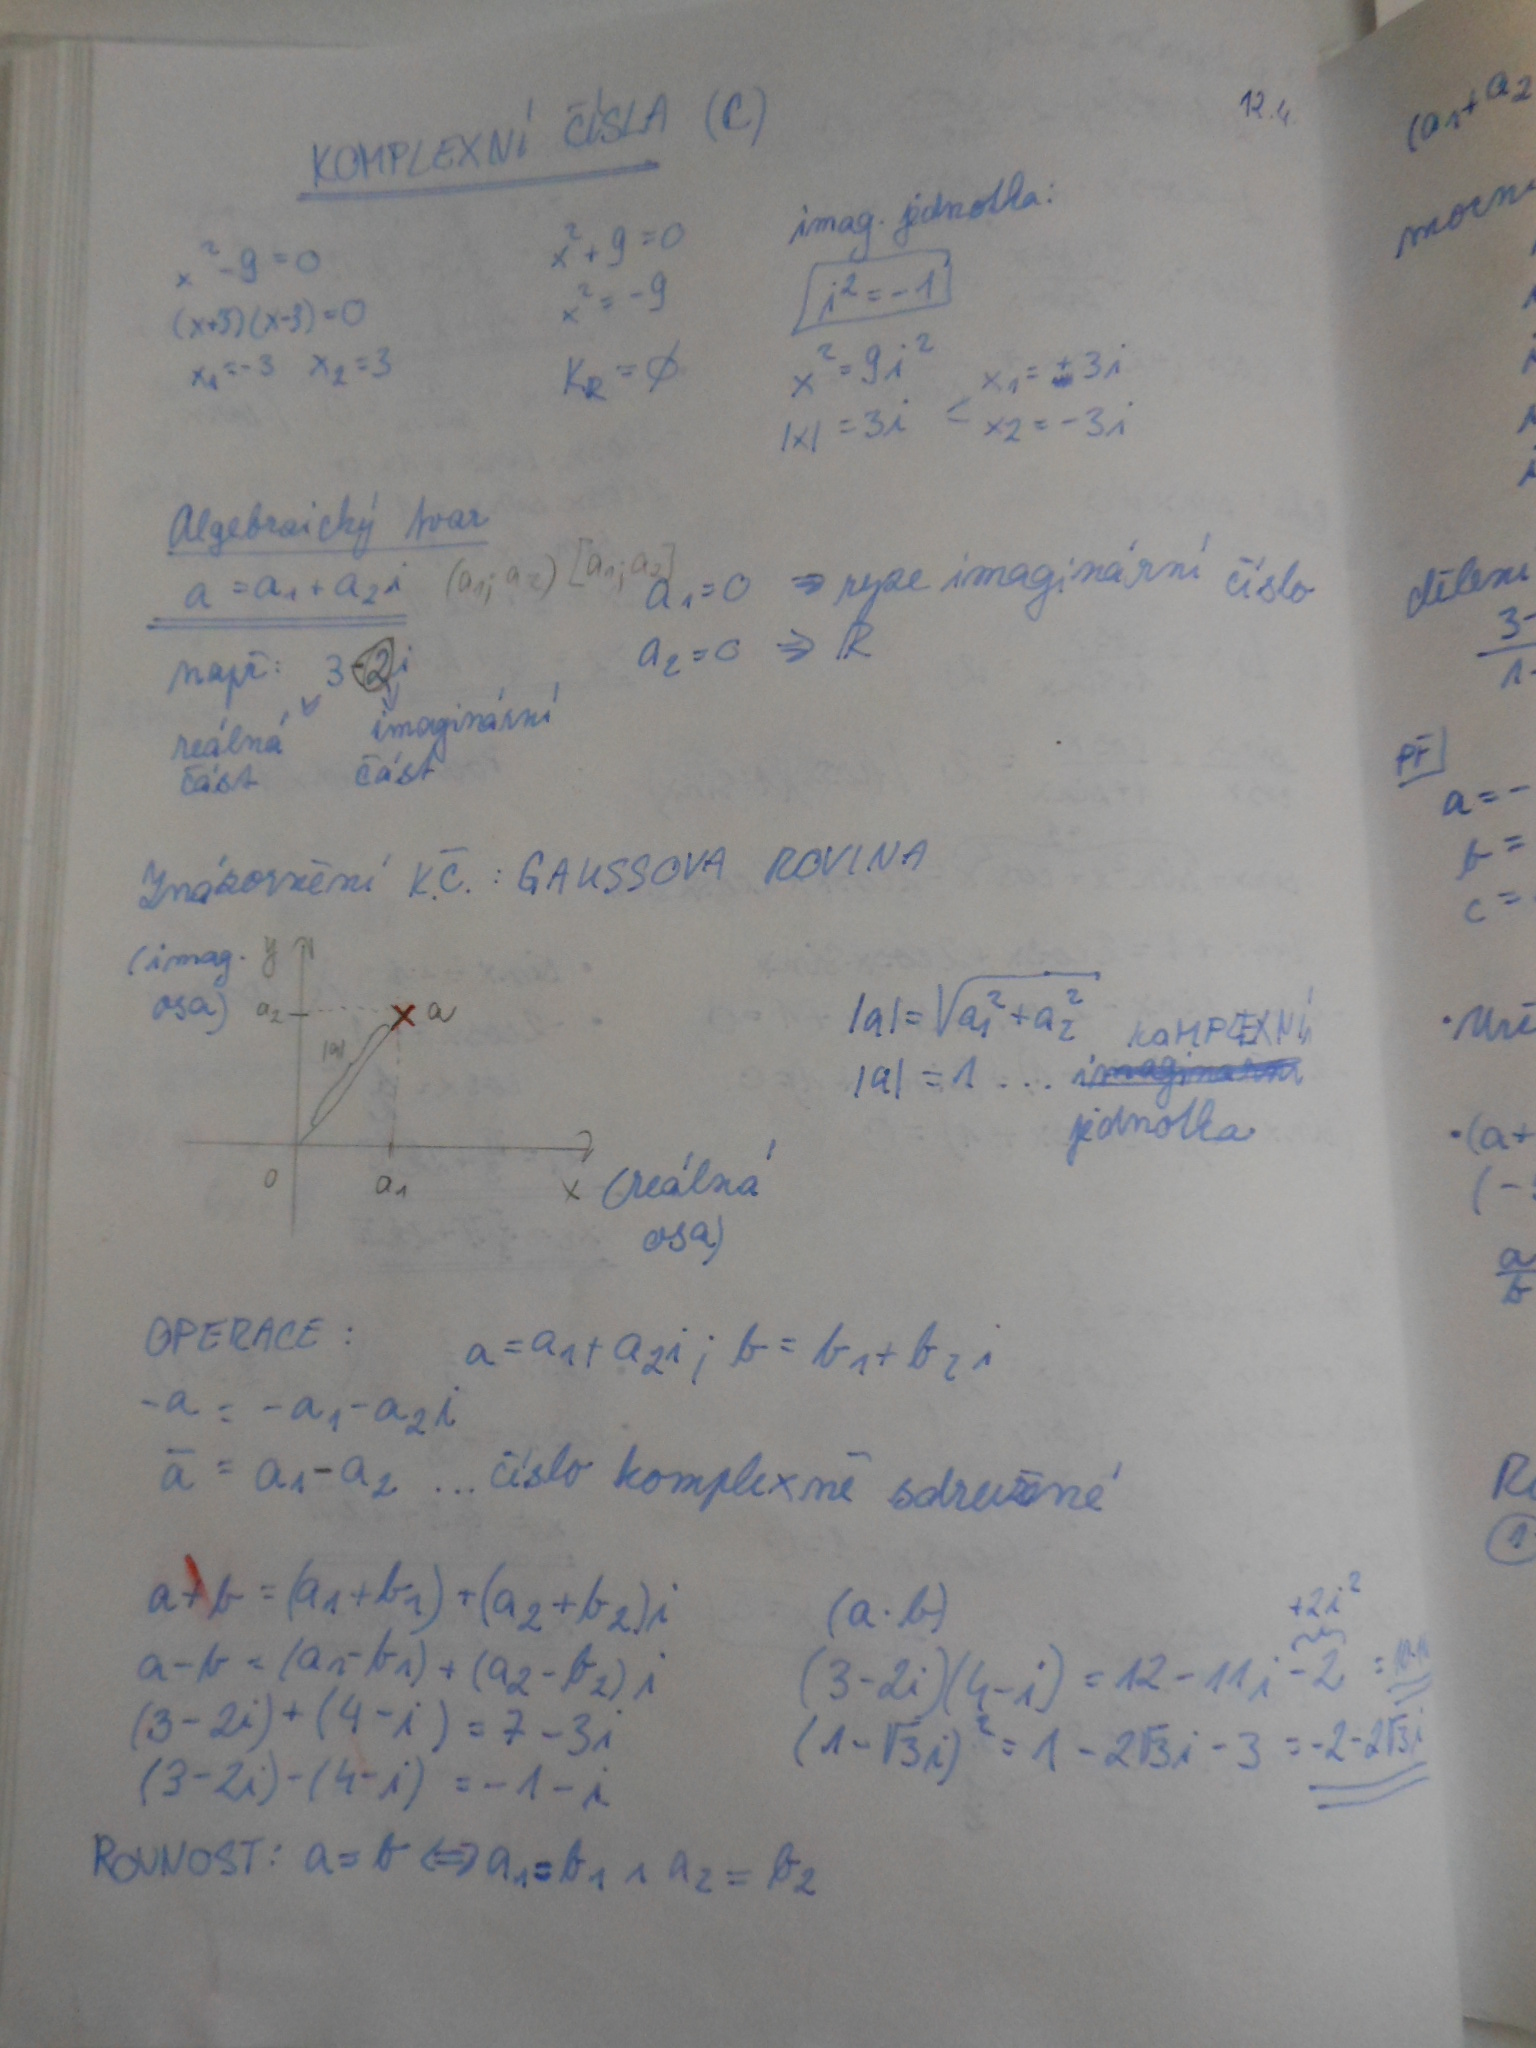 KOMPLEXNÍ ČÍSLA (C)
12.4.
x²-9=0
(x+3)(x-3)=0
x₁=-3 x₂=3
x²+9=0
x²=-9
K_R=∅
imag. jednotka:
i²=-1
x²=9i²
|x|=3i < x₁=+3i
x₂=-3i
Algebraický tvar
a=a₁+a₂i (a₁;a₂) [a₁;a₂]
a₁=0 ⇒ ryze imaginární číslo
a₂=0 ⇒ R
např: 3-2i
reálná část
imaginární část
Znázornění K.Č.: GAUSSOVA ROVINA
(imag. osa)
y
a₂
a
|a|
0
a₁
x (reálná osa)
|a|=√(a₁²+a₂²)
|a|=1 ... KOMPLEXNÍ
jednotka
OPERACE: a=a₁+a₂i; b=b₁+b₂i
-a=-a₁-a₂i
ā=a₁-a₂ ...číslo komplexně sdružené
a+b=(a₁+b₁)+(a₂+b₂)i
a-b=(a₁-b₁)+(a₂-b₂)i
(3-2i)+(4-i)=7-3i
(3-2i)-(4-i)=-1-i
(a·b)
+2i²
(3-2i)(4-i)=12-11i-2=
(1-√3i)²=1-2√3i-3=-2-2√3i
ROVNOST: a=b⇔a₁=b₁ ∧ a₂=b₂
(a₁+a₂
dělení
3-
1-
PŘ
a=-
b=
c=
(a+
(-
a
b
1